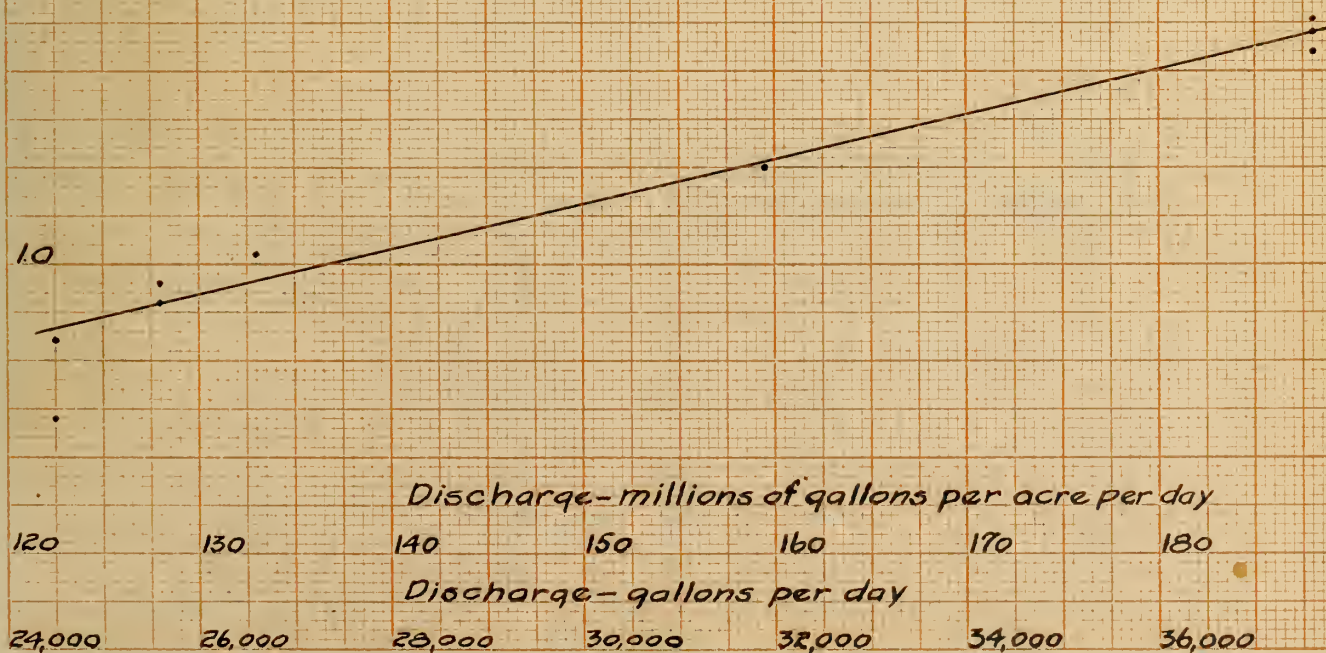 1.0
Discharge-millions of gallons per acre per day
120 130 140 150 160 170 180
Discharge-gallons per day
24,000 26,000 28,000 30,000 32,000 34,000 36,000